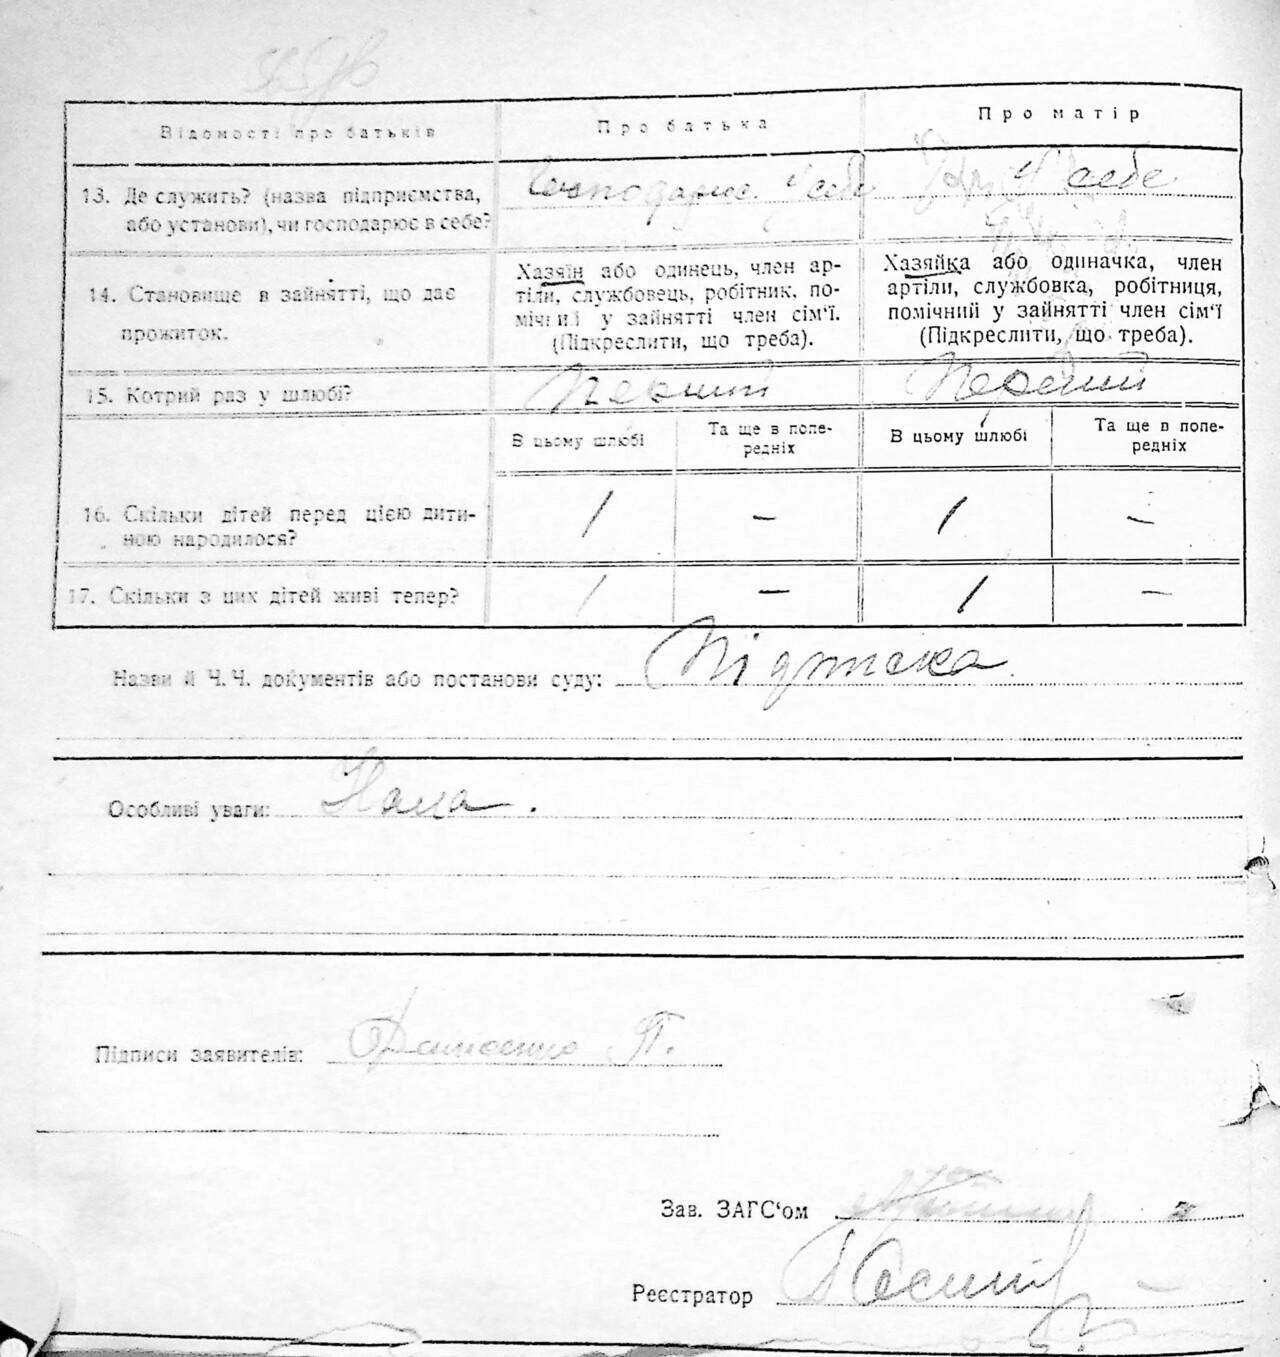 Відомості про батьків
Про батька
Про матір
13. Де служить? (назва підприємства,
або установи), чи господарює в себе?
Господарює. У себе
У себе
14. Становище в зайнятті, що дає
прожиток.
Хазяїн або одинець, член ар-
тілі, службовець, робітник, по-
мічний у зайнятті член сім‘ї.
(Підкреслити, що треба).
Хазяйка або одиначка, член
артіли, службовка, робітниця,
помічний у зайнятті член сім‘ї
(Підкреслити, що треба).
15. Котрий раз у шлюбі?
Перший
Перший
В цьому шлюбі
Та ще в попе-
редніх
В цьому шлюбі
Та ще в попе-
редніх
16. Скільки дітей перед цією дити-
ною народилося?
1 – 1 –
17. Скільки з цих дітей живі тепер?
1 – 1 –
Назви й Ч.Ч. документів або постанови суду:
Особливі уваги:
Підписи заявителів: П.
Зав. ЗАГС‘ом
Реєстратор